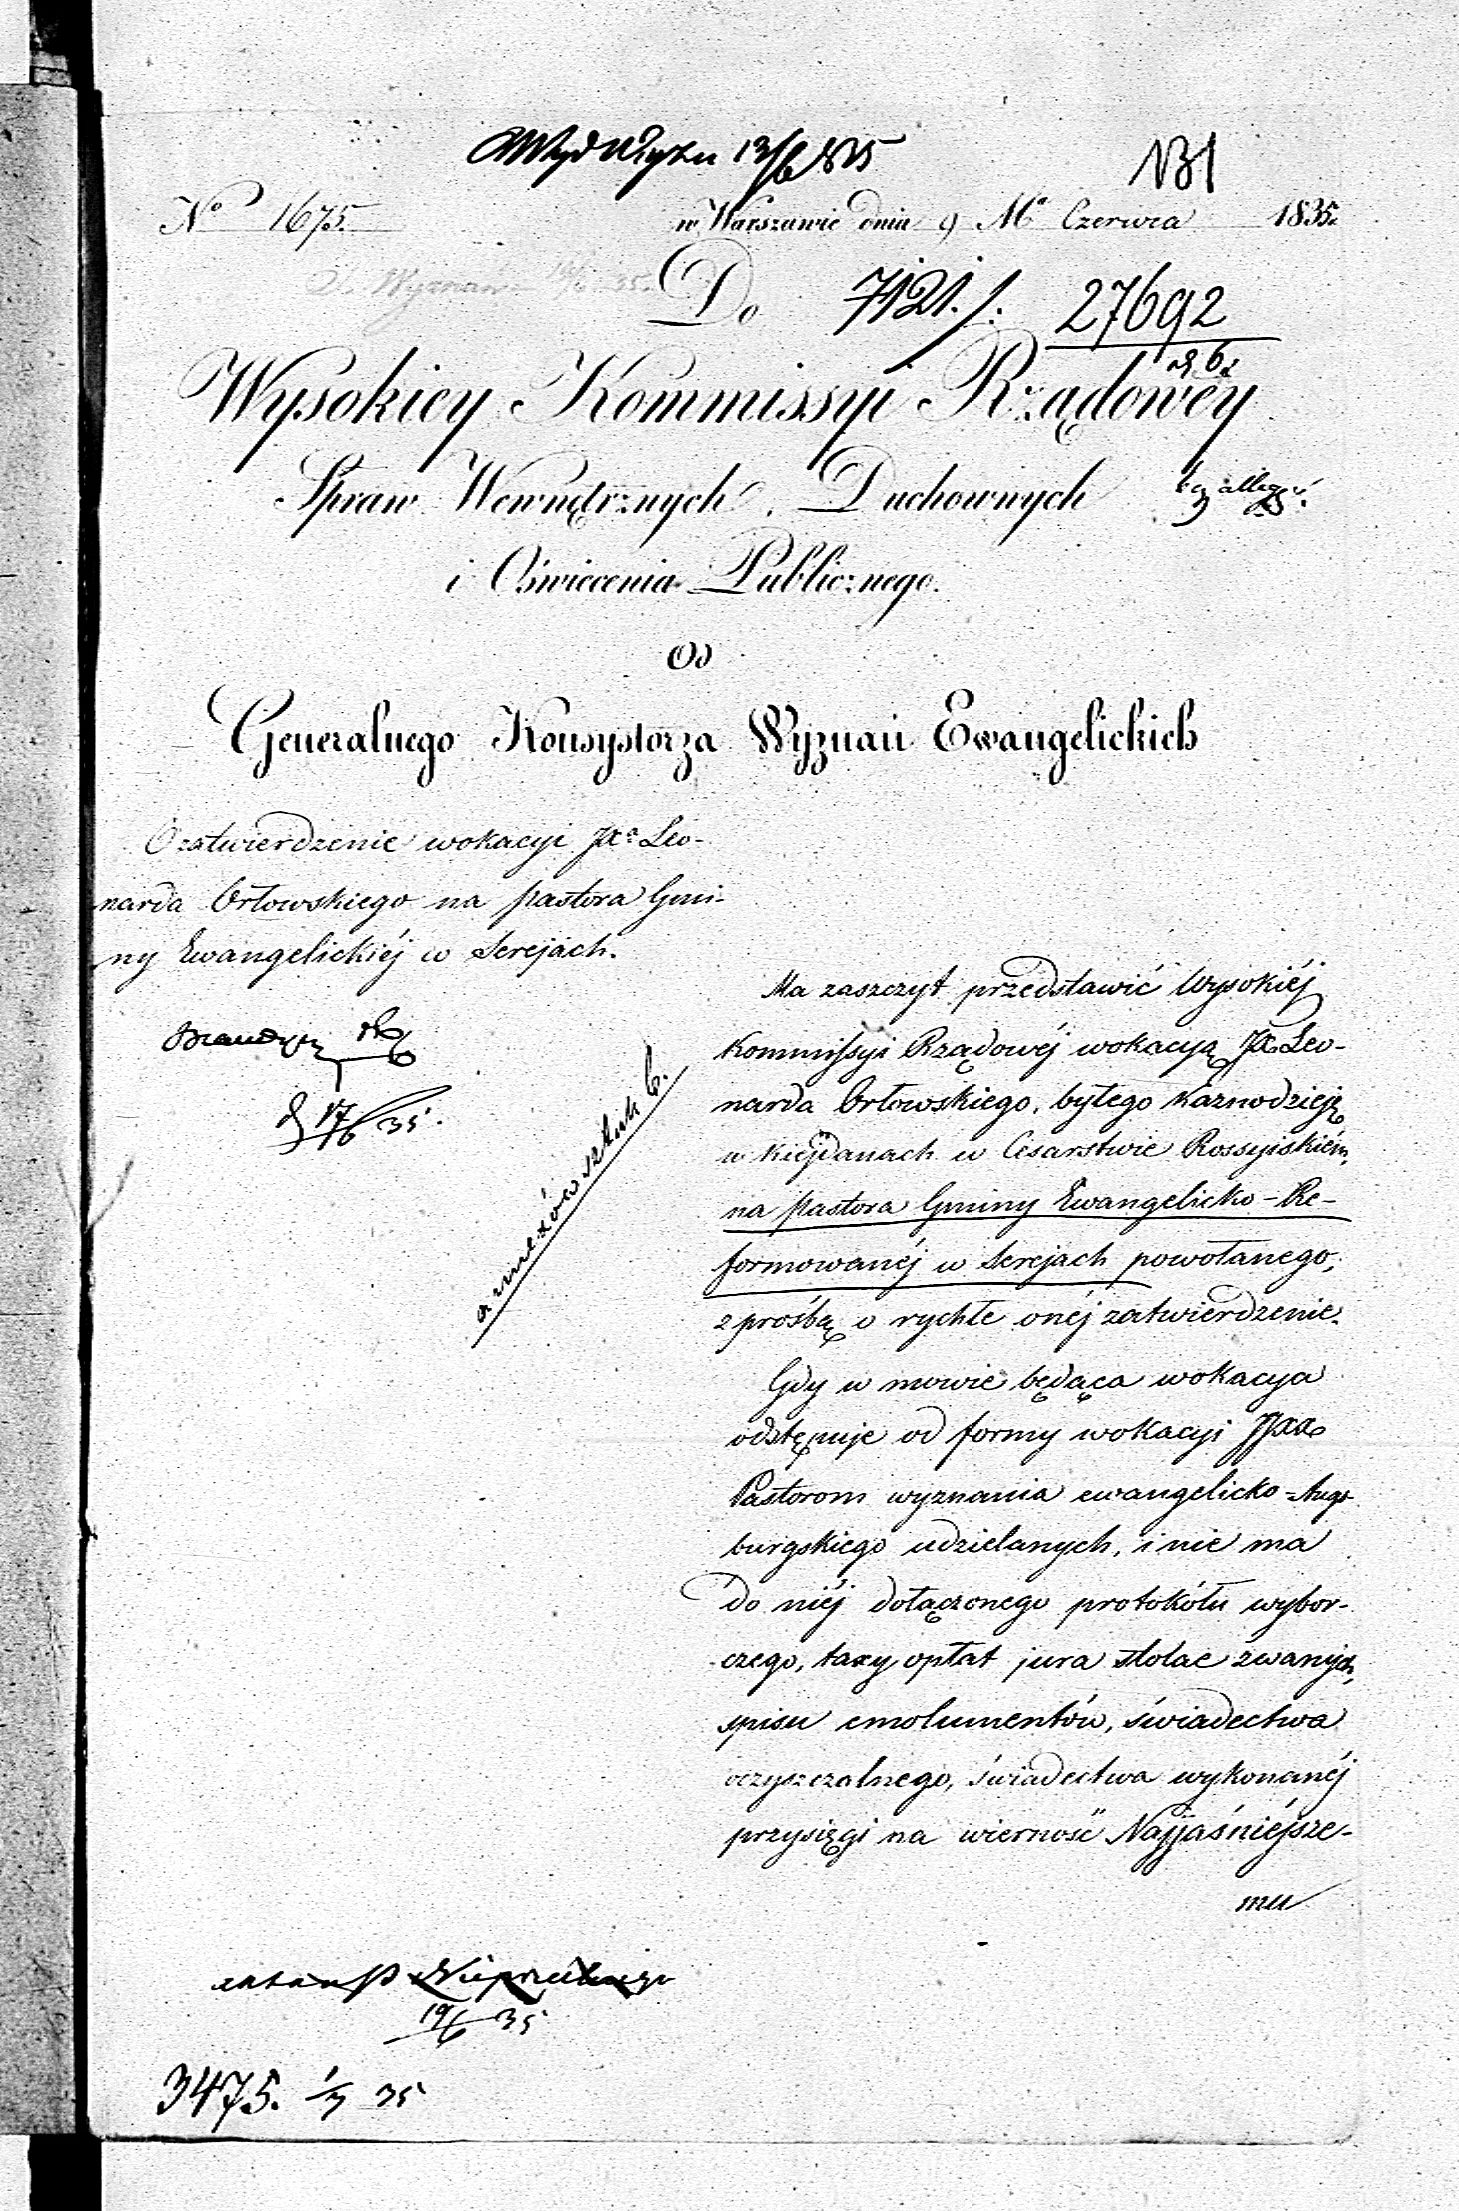 13/6 1835
131
No 1675.
w Warszawie dnia 9 Ma Czerwca 1835.
Do 7121. f. 27692
Wysokiey Kommissyi Rządowey
Spraw Wewnętrznych, Duchownych
i Oświecenia Publicznego.
Od
Generalnego Konsystorza Wyznań Ewangelickich
O zatwierdzenie wokacyi JXa Leo-
narda Orłowskiego na pastora Gmi-
ny Ewangelickiéj w Serejach.
d 17/6 35.
annexów sztuk 6.
Ma zaszczyt przedstawić Wysokiéj
Kommissyi Rządowéj wokacyą JX Leo-
narda Orłowskiego, byłego kaznodzieję
w Kiejdanach w Cesarstwie Rossyiskiém,
na pastora Gminy Ewangelicko-Re-
formowanéj w Serejach powołanego,
z prośbą o rychłe onéj zatwierdzenie.
Gdy w mowie będąca wokacya
odstępuje od formy wokacyi JJXX
Pastorom wyznania ewangelicko-Augs
burgskiego udzielanych, i nie ma
do niéj dołączonego protokółu wybor-
czego, taxy opłat jura stolae zwanych,
spisu emolumentów, świadectwa
oczyszczalnego, świadectwa wykonanéj
przysięgi na wierność Najjaśniéjsze-
mu
19/6 35
3475. 1/7 35